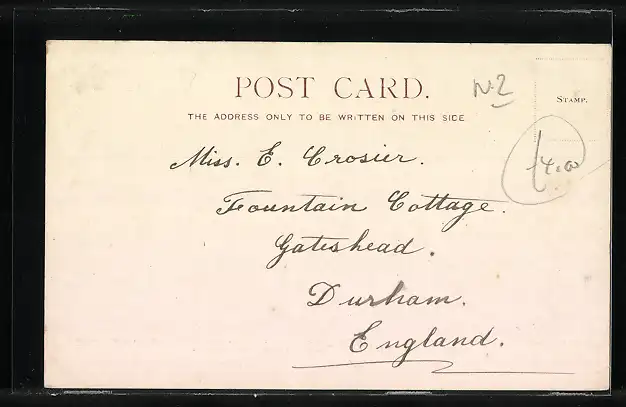 POST CARD.
THE ADDRESS ONLY TO BE WRITTEN ON THIS SIDE
STAMP.
Miss. E. Crosier.
Fountain Cottage.
Gateshead.
Durham.
England.